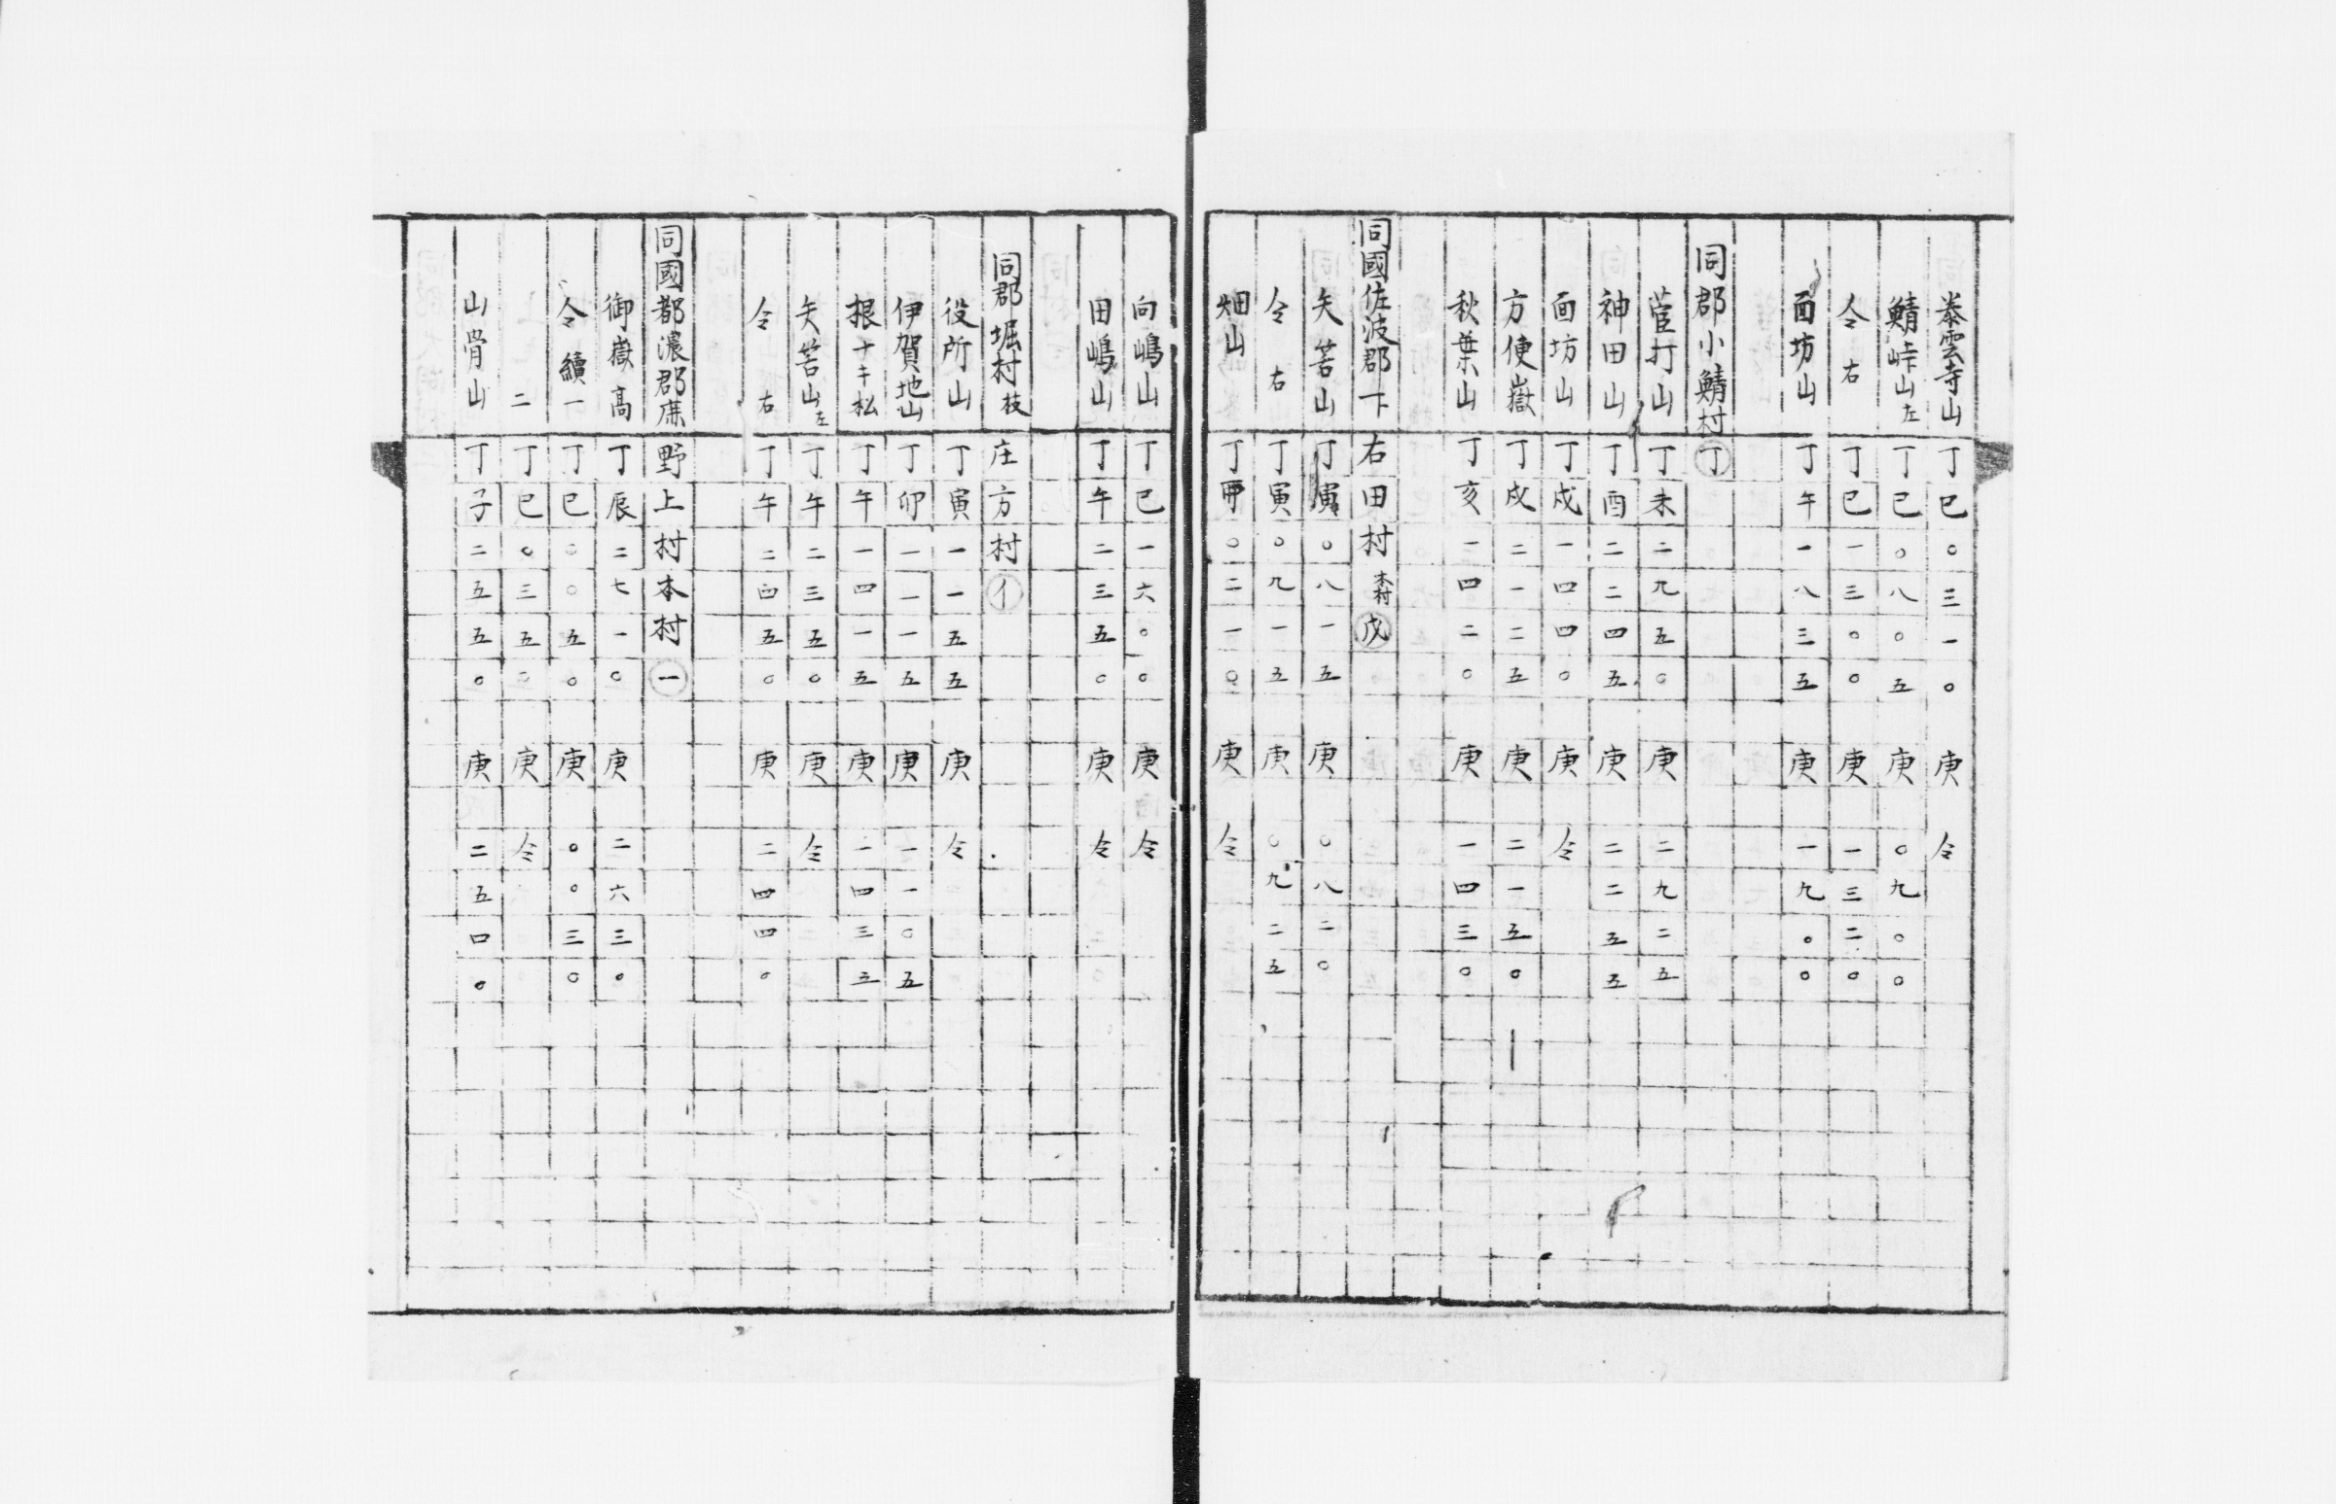 泰雲寺山 丁巳〇三一〇 庚仝
鯖峠山左 丁巳〇八〇五 庚〇九〇〇
仝右 丁巳一三〇〇 庚一三二〇
面坊山 丁午一八三五 庚一九〇〇
同郡小鯖村 丁
菅打山 丁未二九五〇 庚二九二五
神田山 丁酉二二四五 庚二二五五
面坊山 丁戌一四四〇 庚仝
方便嶽 丁戌二一二五 庚二一五〇
秋葉山 丁亥一四二〇 庚一四三〇
同國佐波郡下右田村本村 戊
矢筈山 丁寅〇八一五 庚〇八二〇
仝右 丁寅〇九一五 庚〇九二五
畑山 丁 〇二一〇 庚仝
向嶋山 丁巳一六〇〇 庚仝
田嶋山 丁午二三五〇 庚仝
同郡堀村枝庄方村 イ
役所山 丁寅一一五五 庚仝
伊賀地山 丁卯一一一五 庚一一〇五
根十キ松 丁午一四一五 庚一四三五
矢筈山左 丁午二三五〇 庚仝
仝右 丁午二四五〇 庚二四四〇
同國都濃郡 野上村本村 一
御嶽高 丁辰二七一〇 庚二六三〇
仝續一 丁巳〇〇五〇 庚〇〇三〇
二 丁巳〇三五〇 庚仝
山骨山 丁子二五五〇 庚二五四〇